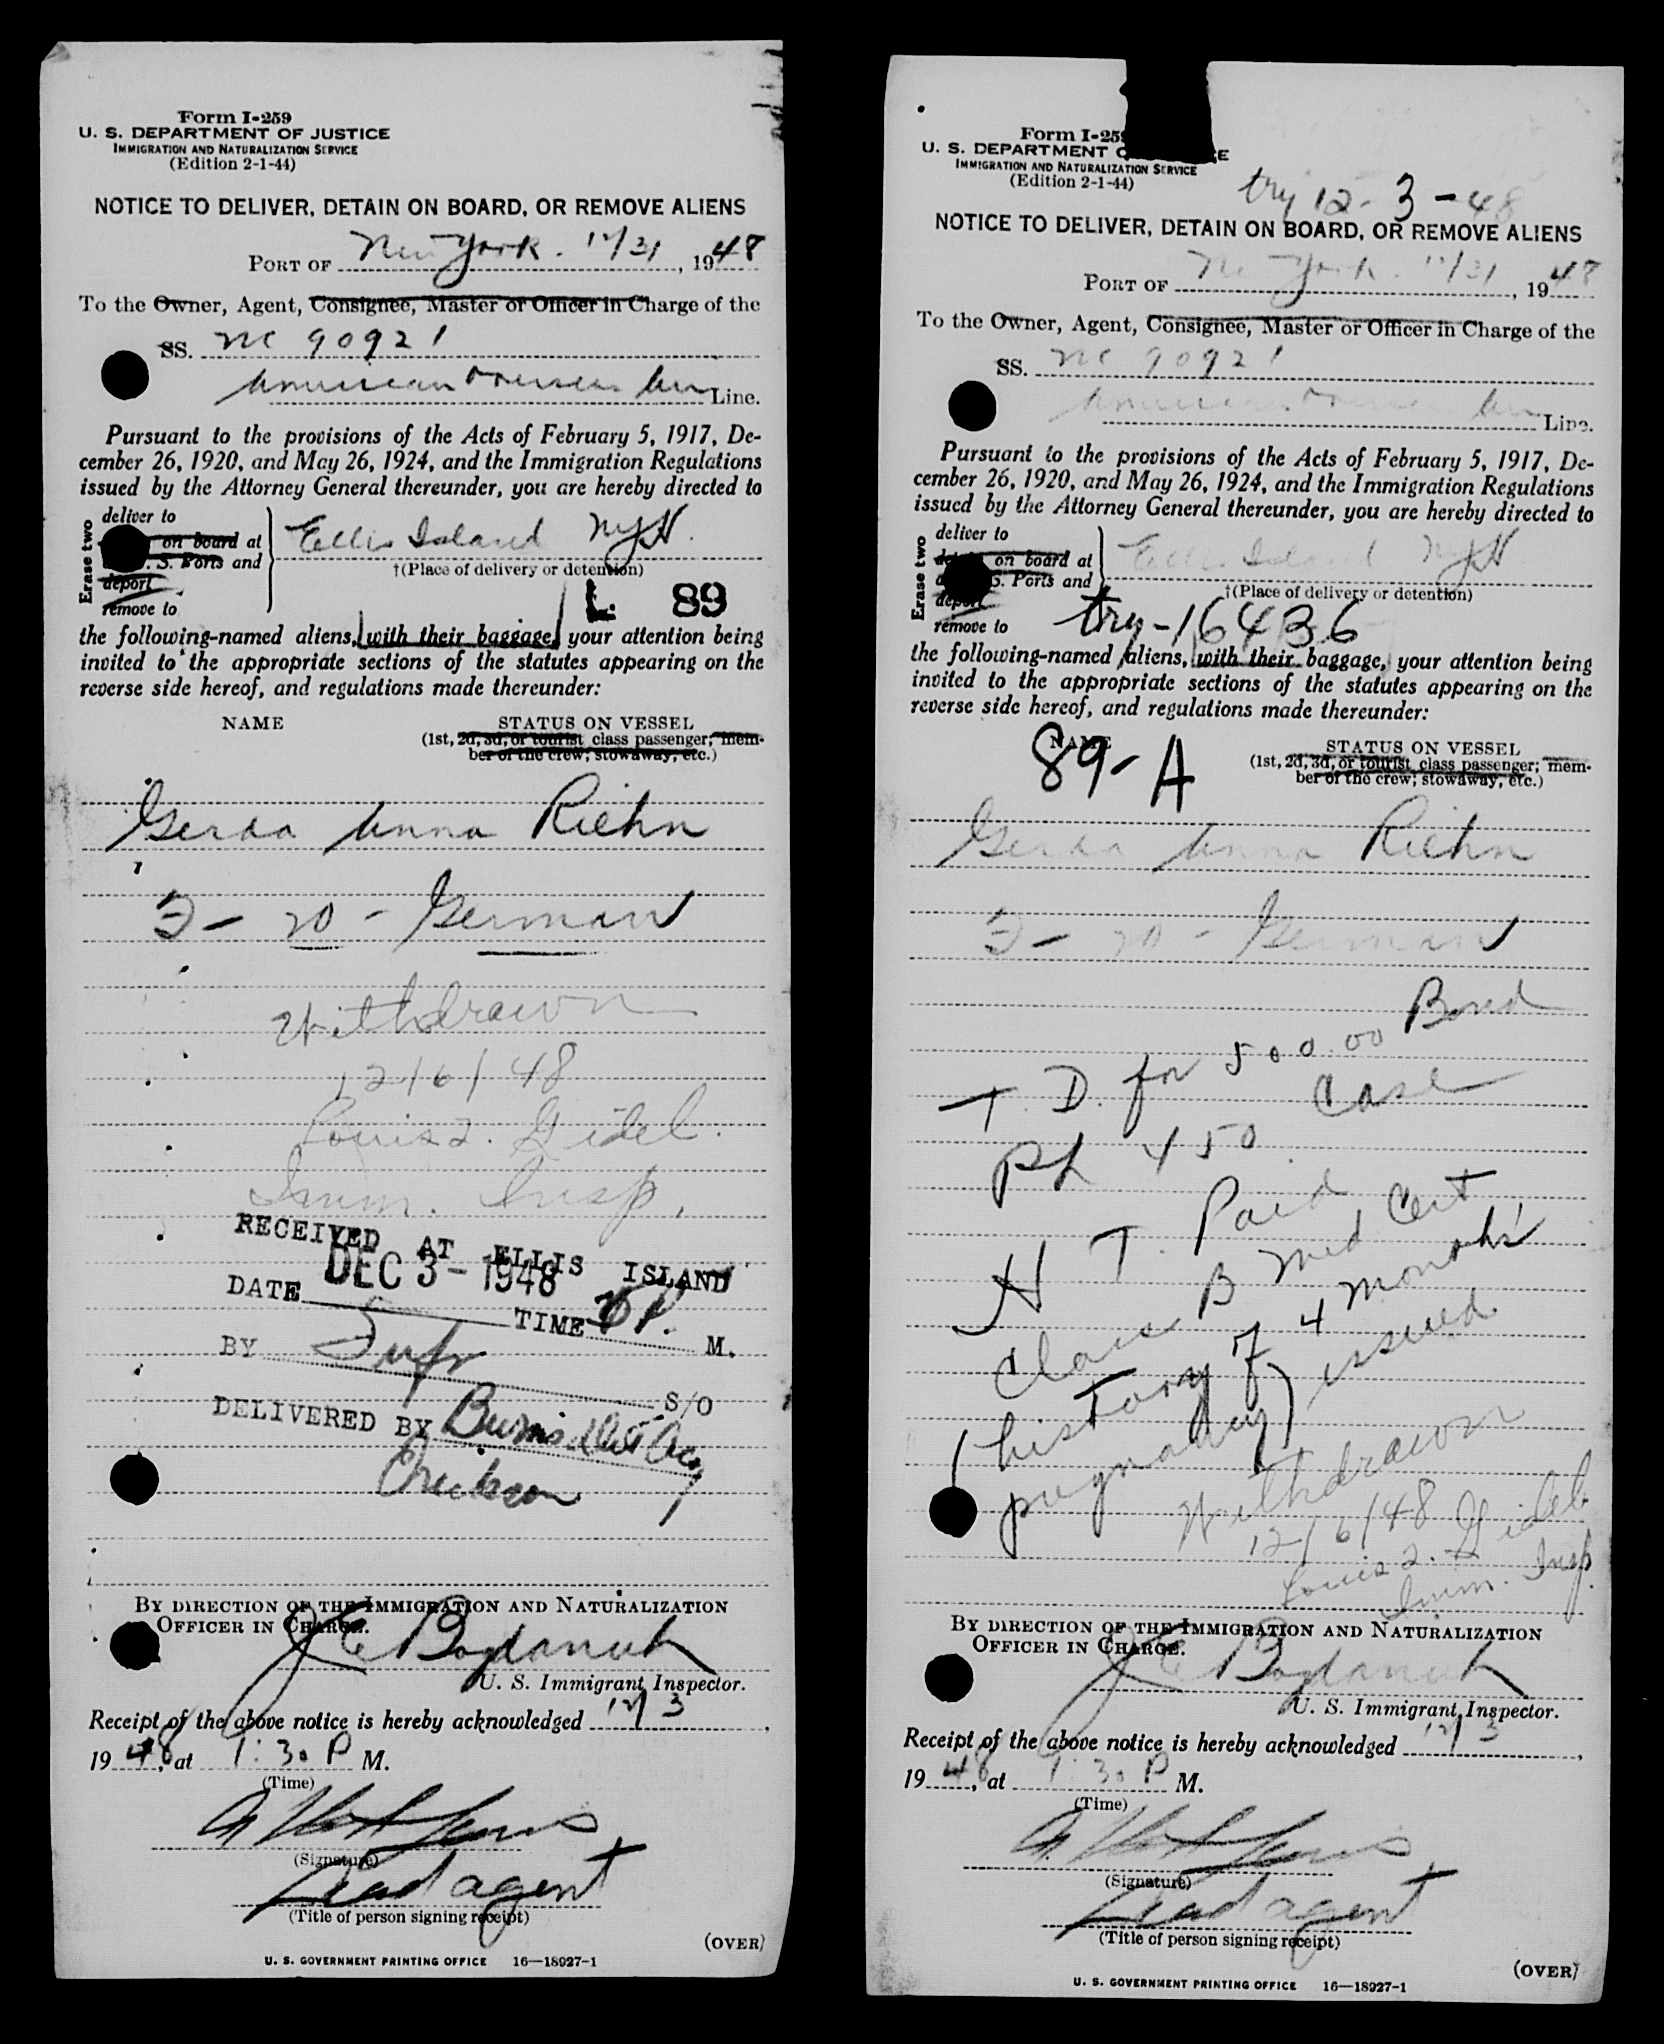 Form I-259
U. S. DEPARTMENT OF JUSTICE
IMMIGRATION AND NATURALIZATION SERVICE
(Edition 2-1-44)
NOTICE TO DELIVER, DETAIN ON BOARD, OR REMOVE ALIENS
PORT OF New York. 12/31, 1948
To the Owner, Agent, Consignee, Master or Officer in Charge of the
SS. NC 90921
American Overseas Air Line.
Pursuant to the provisions of the Acts of February 5, 1917, De-
cember 26, 1920, and May 26, 1924, and the Immigration Regulations
issued by the Attorney General thereunder, you are hereby directed to
Erase two
deliver to
on board at
S. Ports and
deport
remove to
Ellis Island NYH.
†(Place of delivery or detention)
L. 89
the following-named aliens, with their baggage, your attention being
invited to the appropriate sections of the statutes appearing on the
reverse side hereof, and regulations made thereunder:
NAME STATUS ON VESSEL
(1st, 2d, 3d, or tourist class passenger; mem-
ber of the crew; stowaway, etc.)
Gerda Anna Riehn
F - 20 - German
Withdrawn
12/6/48
Louis Z. Gidel.
Imm. Insp.
RECEIVED AT ELLIS ISLAND
DATE DEC 3 - 1948 TIME P. M.
BY S/O
DELIVERED BY Burns Det Acy
Erickson
BY DIRECTION OF THE IMMIGRATION AND NATURALIZATION
OFFICER IN CHARGE.
J E Bogdanuk
U. S. Immigrant Inspector.
Receipt of the above notice is hereby acknowledged 12/3,
1948, at 1:30 P M.
(Time)
(Signature)
Lead agent
(Title of person signing receipt)
(OVER)
U. S. GOVERNMENT PRINTING OFFICE 16—18927-1
Form I-259
U. S. DEPARTMENT
IMMIGRATION AND NATURALIZATION SERVICE
(Edition 2-1-44)
try 12-3-48
NOTICE TO DELIVER, DETAIN ON BOARD, OR REMOVE ALIENS
PORT OF New York. 12/31, 1948
To the Owner, Agent, Consignee, Master or Officer in Charge of the
SS. NC 90921
American Overseas Air Line.
Pursuant to the provisions of the Acts of February 5, 1917, De-
cember 26, 1920, and May 26, 1924, and the Immigration Regulations
issued by the Attorney General thereunder, you are hereby directed to
Erase two
deliver to
on board at
S. Ports and
deport
remove to
Ellis Island NYH
†(Place of delivery or detention)
try-16436
the following-named aliens, with their baggage, your attention being
invited to the appropriate sections of the statutes appearing on the
reverse side hereof, and regulations made thereunder:
NAME STATUS ON VESSEL
89-A
(1st, 2d, 3d, or tourist class passenger; mem-
ber of the crew; stowaway, etc.)
Gerda Anna Riehn
F - 20 - German
T. D. for 500.00 Bond
Case
450
H T. Paid
Class B Med Cert
(history of 4 months'
pregnancy) issued
Withdrawn
12/6/48
Louis Z. Gidel
Imm. Insp.
BY DIRECTION OF THE IMMIGRATION AND NATURALIZATION
OFFICER IN CHARGE.
J E Bogdanuk
U. S. Immigrant Inspector.
Receipt of the above notice is hereby acknowledged 12/3,
1948, at 1:30 P M.
(Time)
(Signature)
Lead agent
(Title of person signing receipt)
(OVER)
U. S. GOVERNMENT PRINTING OFFICE 16—18927-1